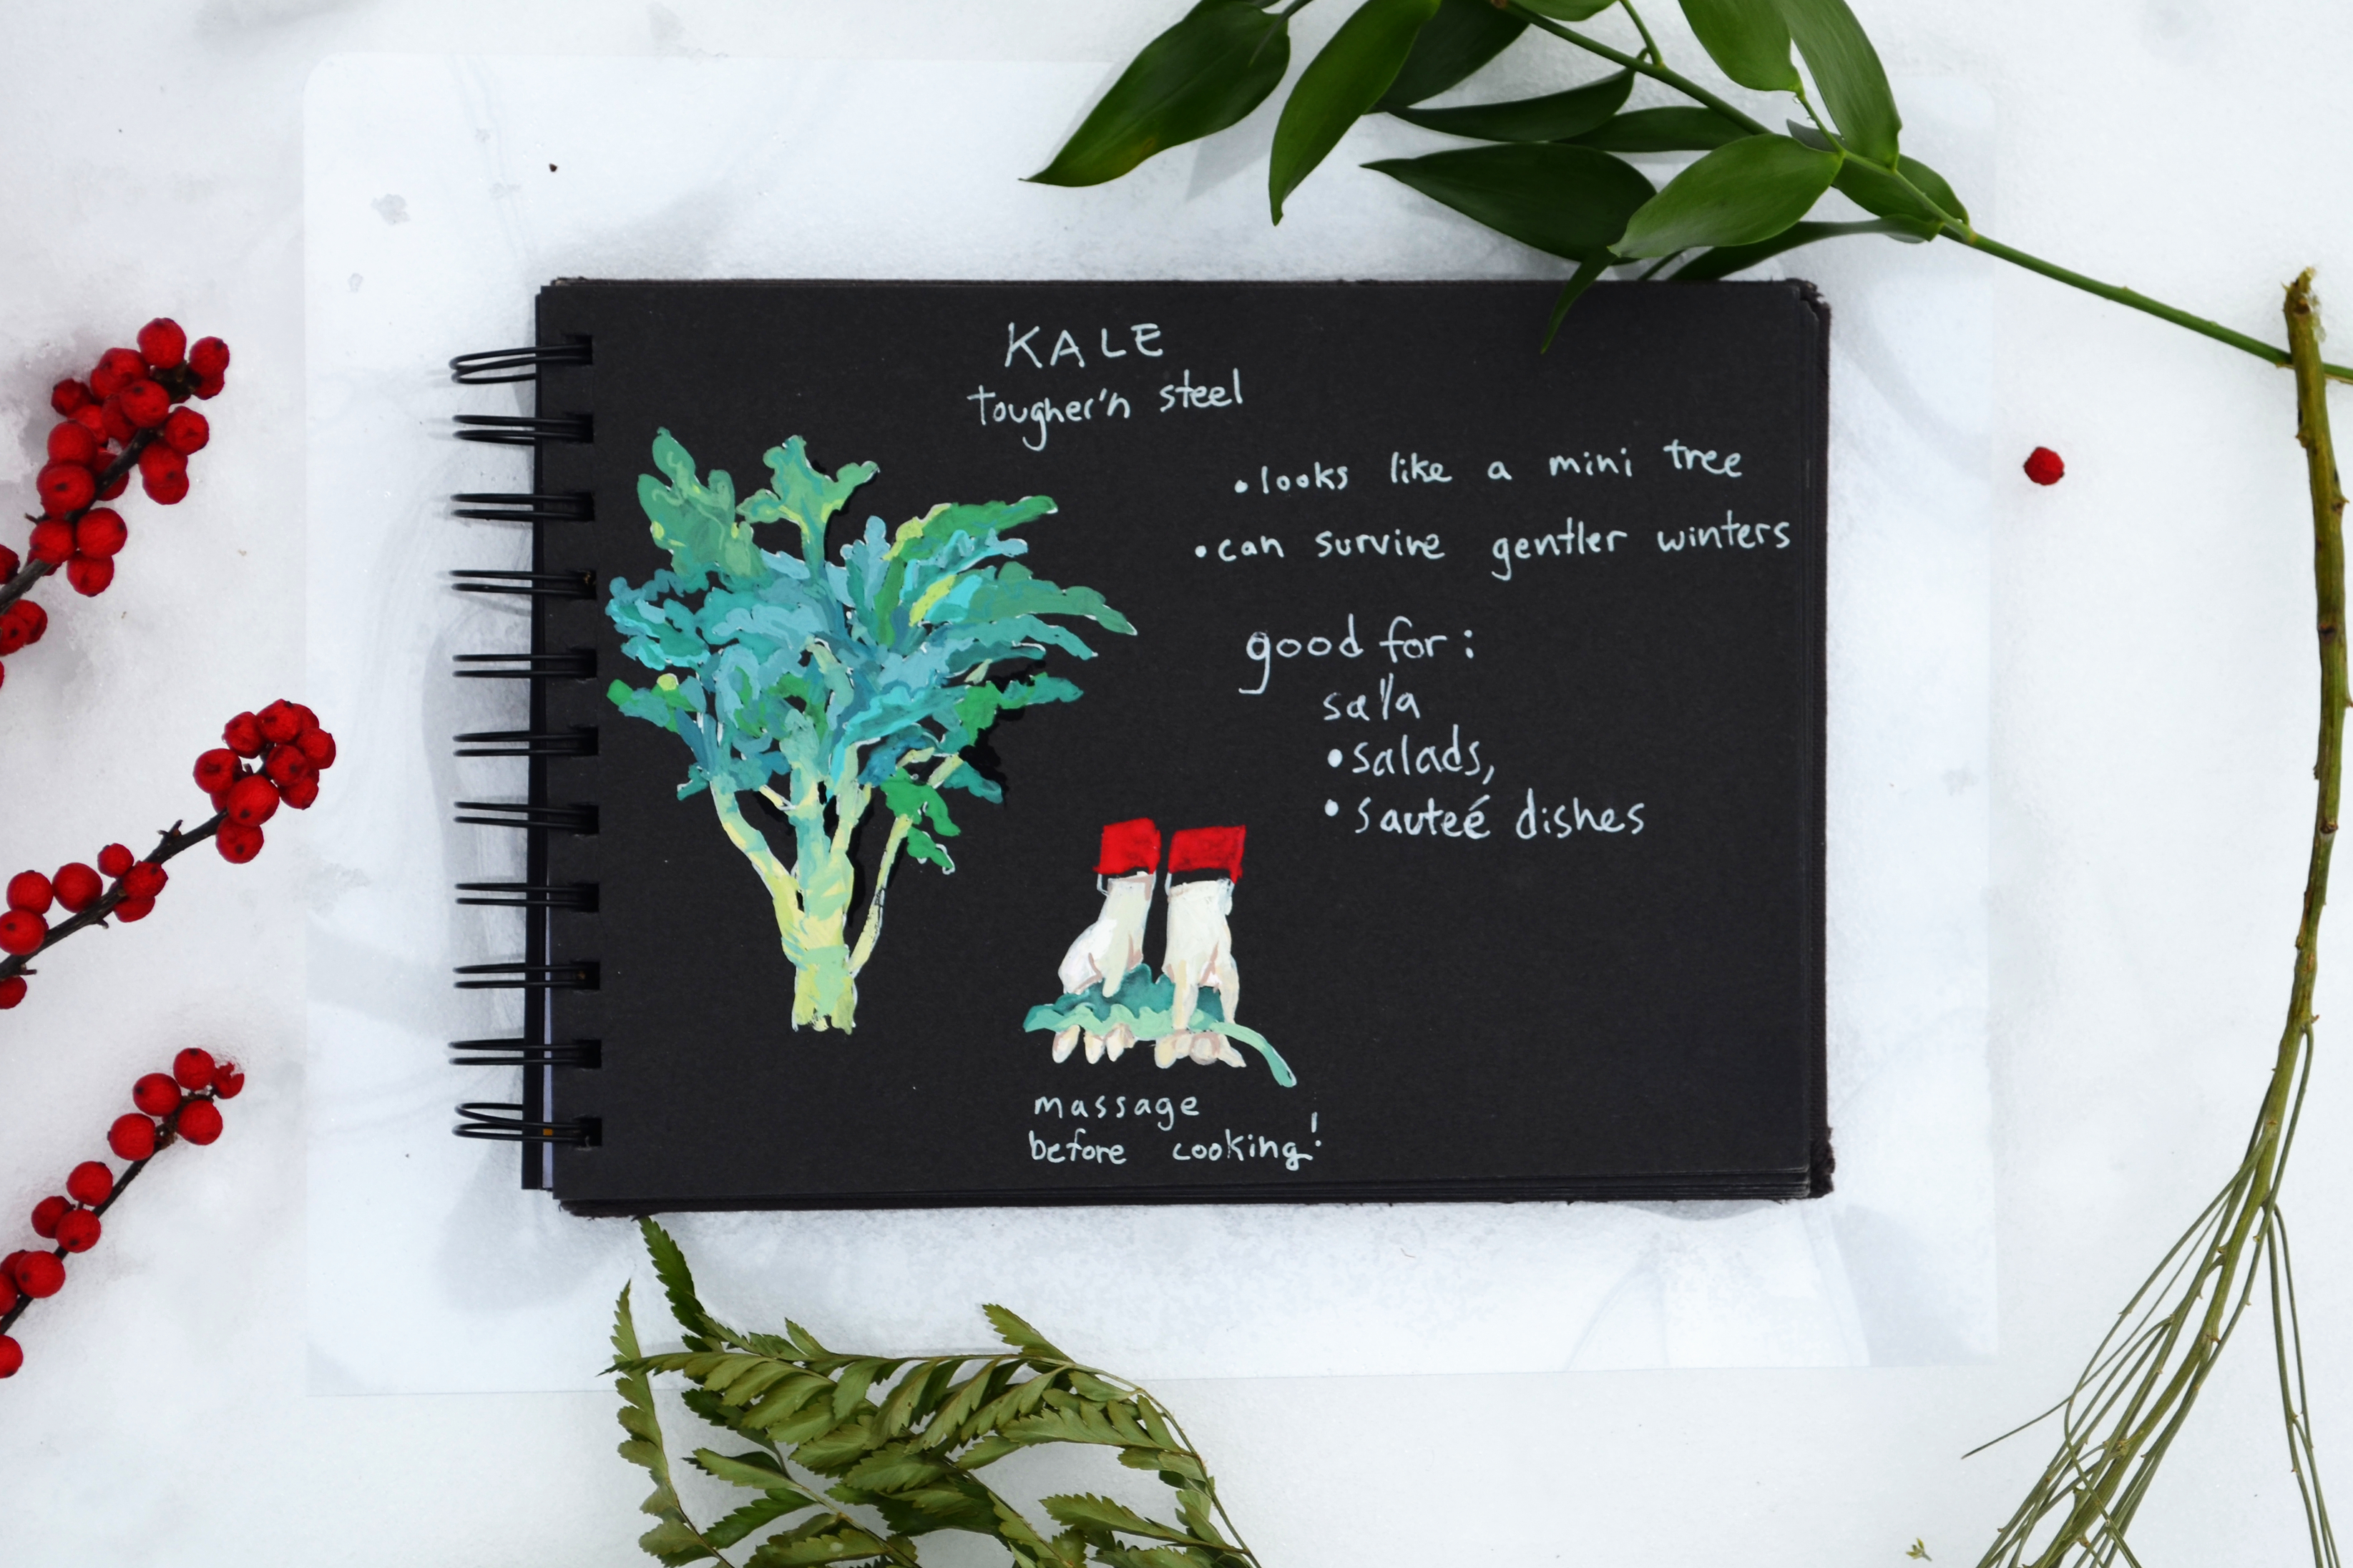 KALE
tougher'n steel
•looks like a mini tree
•can survive gentler winters
good for:
salla
•salads,
•sauteé dishes
massage
before cooking!